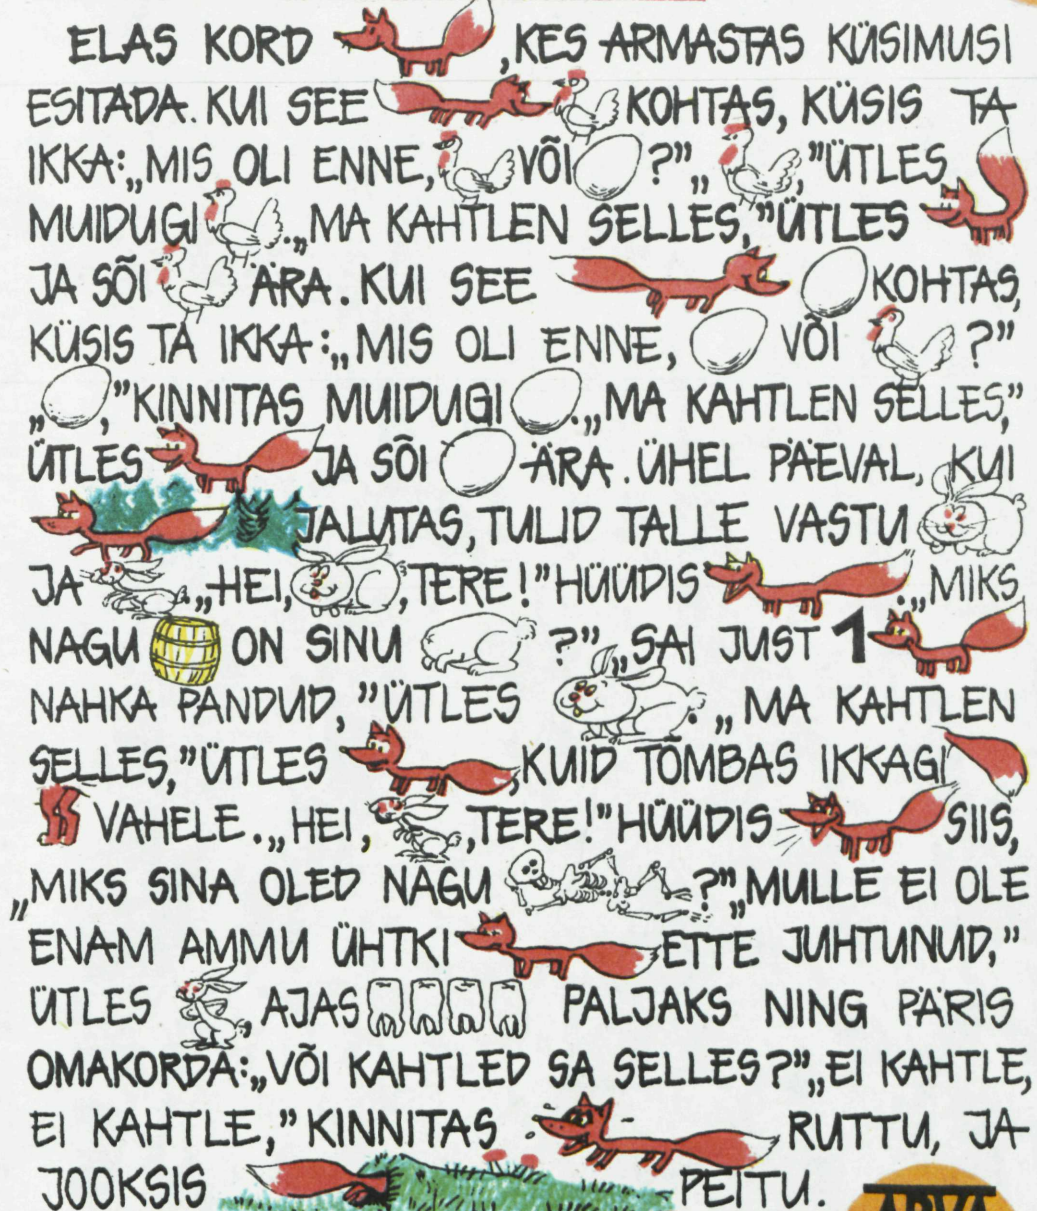 ELAS KORD , KES ARMASTAS KÜSIMUSI
ESITADA. KUI SEE KOHTAS, KÜSIS TA
IKKA: „MIS OLI ENNE, VÕI ?” „ ,” ÜTLES
MUIDUGI . „MA KAHTLEN SELLES,” ÜTLES
JA SÕI ÄRA. KUI SEE KOHTAS,
KÜSIS TA IKKA: „MIS OLI ENNE, VÕI ?”
„ ,” KINNITAS MUIDUGI . „MA KAHTLEN SELLES,”
ÜTLES JA SÕI ÄRA. ÜHEL PÄEVAL, KUI
JALUTAS, TULID TALLE VASTU
JA . „HEI, , TERE!” HÜÜDIS . „MIKS
NAGU ON SINU ?” „SAI JUST 1
NAHKA PANDUD,” ÜTLES . „MA KAHTLEN
SELLES,” ÜTLES , KUID TÕMBAS IKKAGI
VAHELE. „HEI, , TERE!” HÜÜDIS SIIS,
„MIKS SINA OLED NAGU ?” „MULLE EI OLE
ENAM AMMU ÜHTKI ETTE JUHTUNUD,”
ÜTLES AJAS PALJAKS NING PÄRIS
OMAKORDA: „VÕI KAHTLED SA SELLES?” „EI KAHTLE,
EI KAHTLE,” KINNITAS RUTTU, JA
JOOKSIS PEITU.